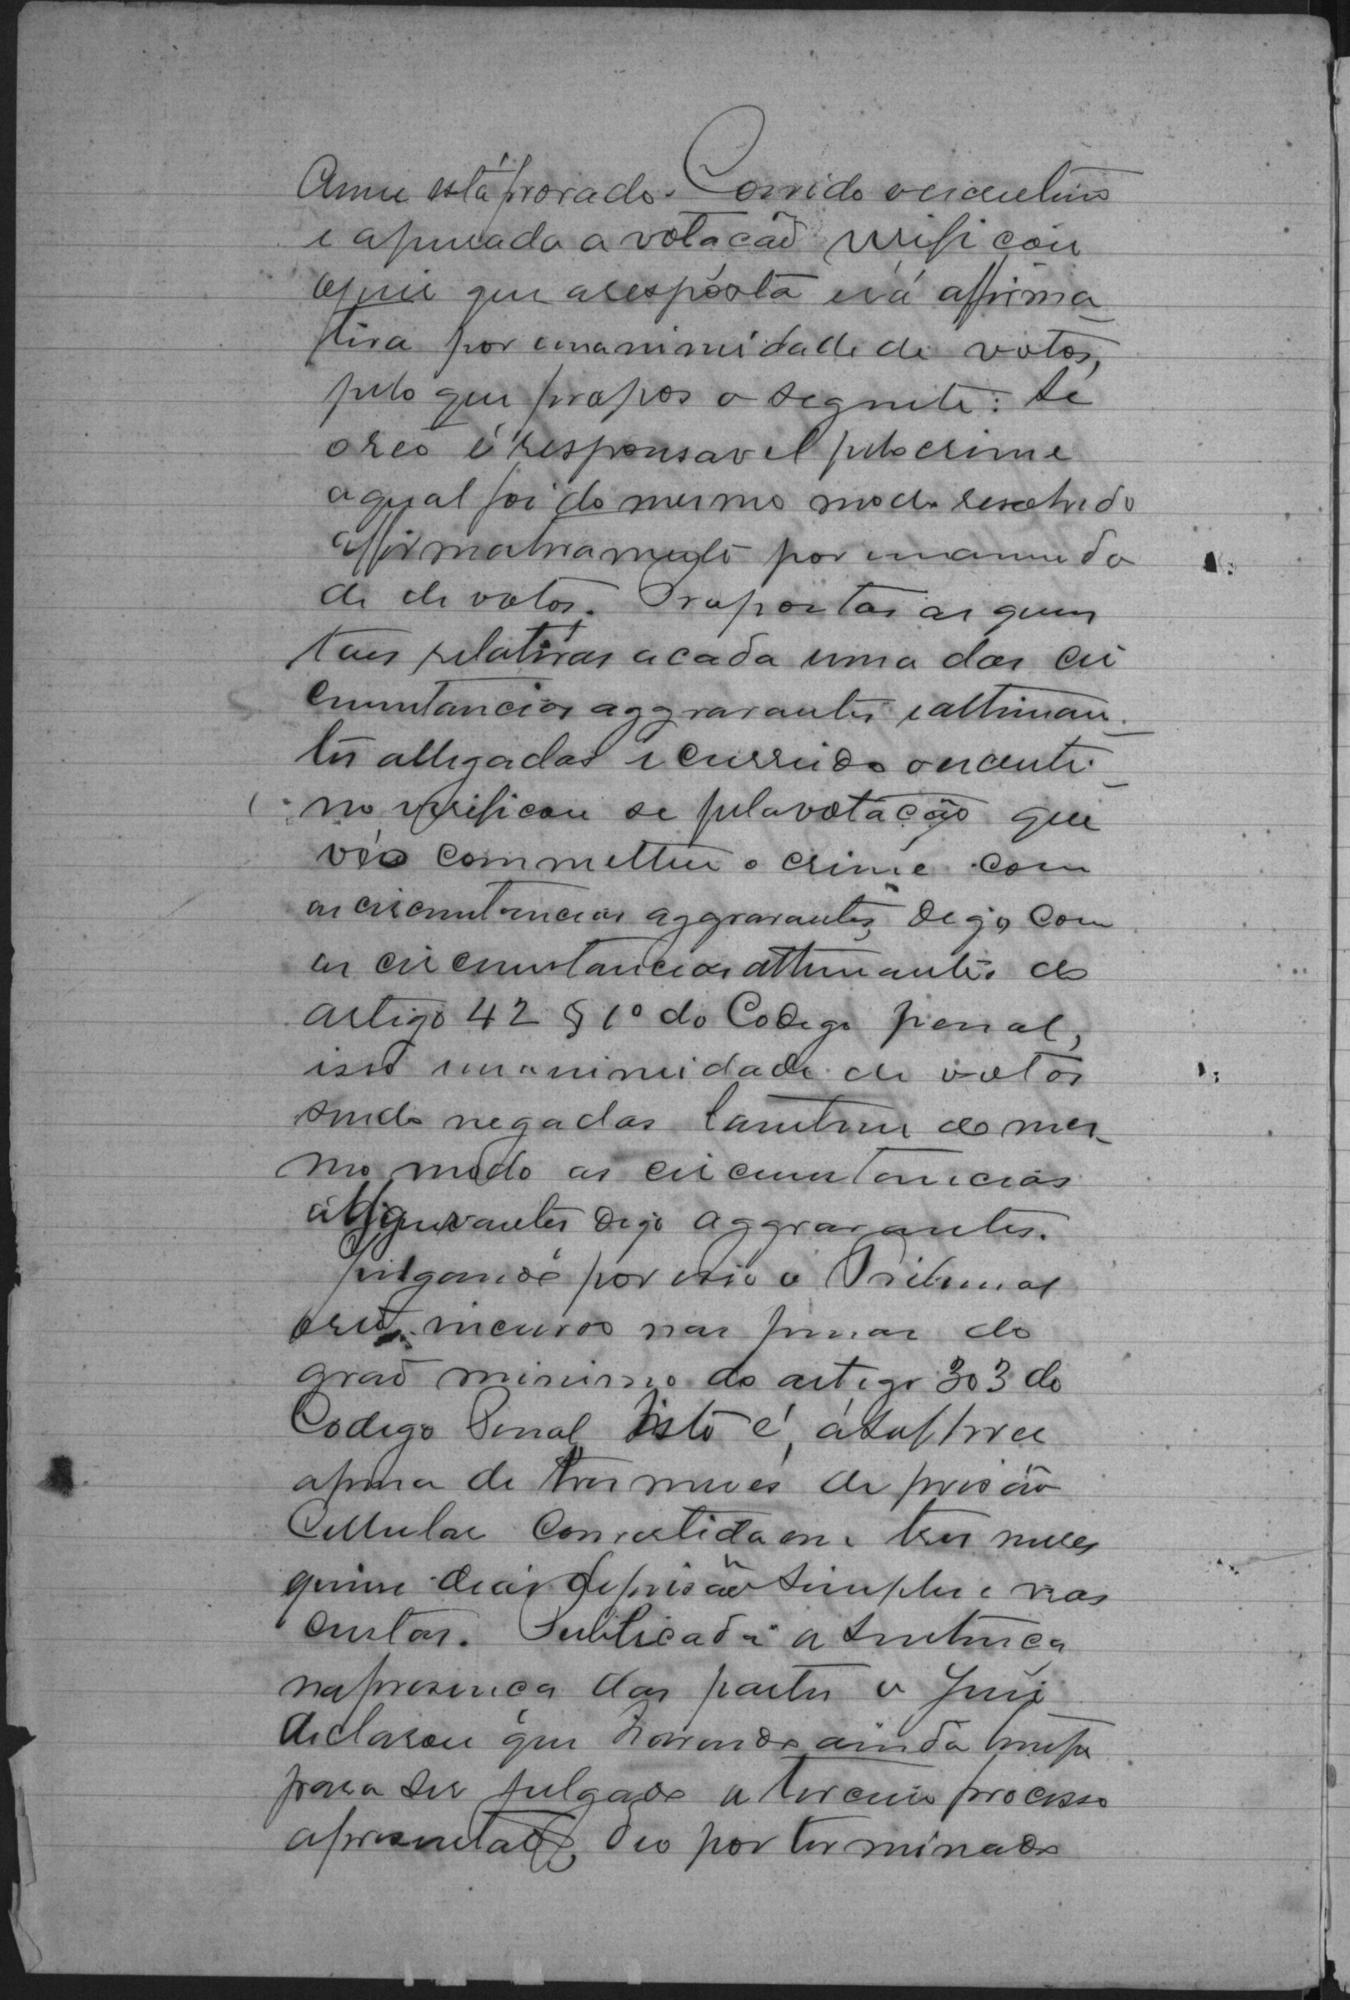 crime está provado. Corrido o escrutinio
e apurada a votação verificou
o juiz que a resposta era affirma-
tiva por unanimidade de votos,
pelo que propos o seguinte: Se
o reo é responsavel pelo crime
a qual foi do mesmo modo resolvido
affirmativamente por unanimida
de de votos. Propostas as ques
tões relativas a cada uma das cir
cumstancias aggravantes e attenuan-
tes allegadas e corrido o escruti-
nio verificou se pela votação que
réo commetteu o crime com
as circumstancias aggravantes, digo, com
as circumstancias attenuantes do
artigo 42 § 1º do Codigo penal,
isto unanimidade de votos
sendo negadas tambem do mes-
mo modo as circumstancias
digo aggravantes.
Julgando por isso o Tribunal
o réo incurso nas penas do
grao minimo do artigo 303 do
Codigo Penal isto é, á soffrer
a pena de tres meses de prisão
Cellular convertida em tres meses
quinze dias de prisão simples e nas
custas. Publicada a sentença
na presença das partes o Juiz
declarou que havendo ainda tempo
para ser julgado o terceiro processo
apresentado, deo por terminado